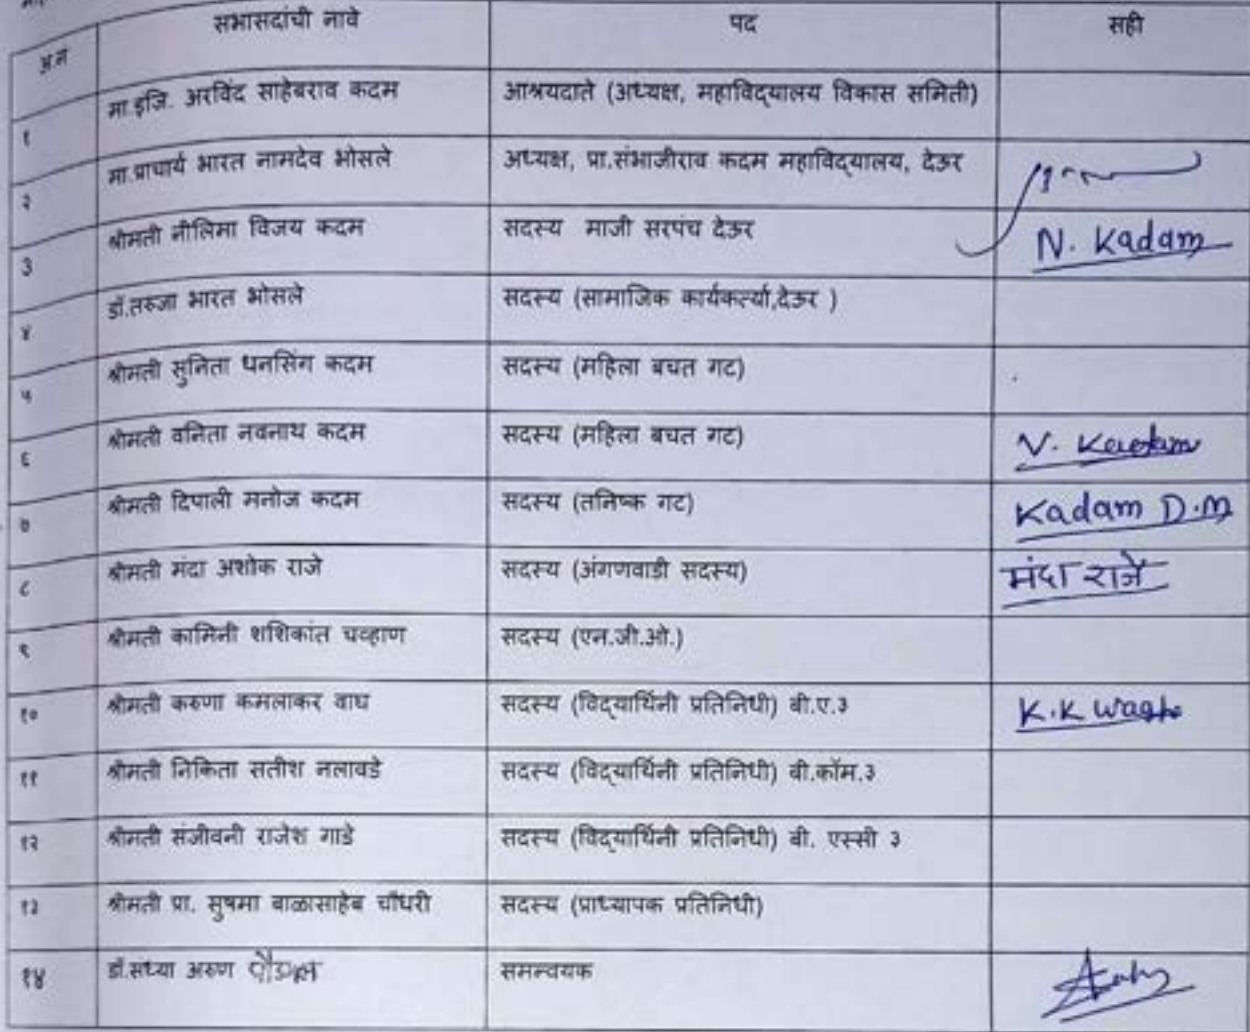 अ.न सभासदांची नावे पद सही
१ मा.इंजि. अरविंद साहेबराव कदम आश्रयदाते (अध्यक्ष, महाविद्यालय विकास समिती)
२ मा.प्राचार्य भारत नामदेव भोसले अध्यक्ष, प्रा.संभाजीराव कदम महाविद्यालय, देऊर
3 श्रीमती नीलिमा विजय कदम सदस्य माजी सरपंच देऊर N. Kadam
४ डॉ.तरुजा भारत भोसले सदस्य (सामाजिक कार्यकर्त्या,देऊर )
५ श्रीमती सुनिता धनसिंग कदम सदस्य (महिला बचत गट)
६ श्रीमती वनिता नवनाथ कदम सदस्य (महिला बचत गट) V. Kadam
७ श्रीमती दिपाली मनोज कदम सदस्य (तनिष्क गट) Kadam D.M
८ श्रीमती मंदा अशोक राजे सदस्य (अंगणवाडी सदस्य) मंदा राजे
९ श्रीमती कामिनी शशिकांत चव्हाण सदस्य (एन.जी.ओ.)
१० श्रीमती करुणा कमलाकर वाघ सदस्य (विद्यार्थिनी प्रतिनिधी) बी.ए.३ K.K Wagh
११ श्रीमती निकिता सतीश नलावडे सदस्य (विद्यार्थिनी प्रतिनिधी) बी.कॉम.३
१२ श्रीमती संजीवनी राजेश गाडे सदस्य (विद्यार्थिनी प्रतिनिधी) बी. एस्सी ३
१३ श्रीमती प्रा. सुषमा बाळासाहेब चौधरी सदस्य (प्राध्यापक प्रतिनिधी)
१४ डॉ.संध्या अरुण समन्वयक